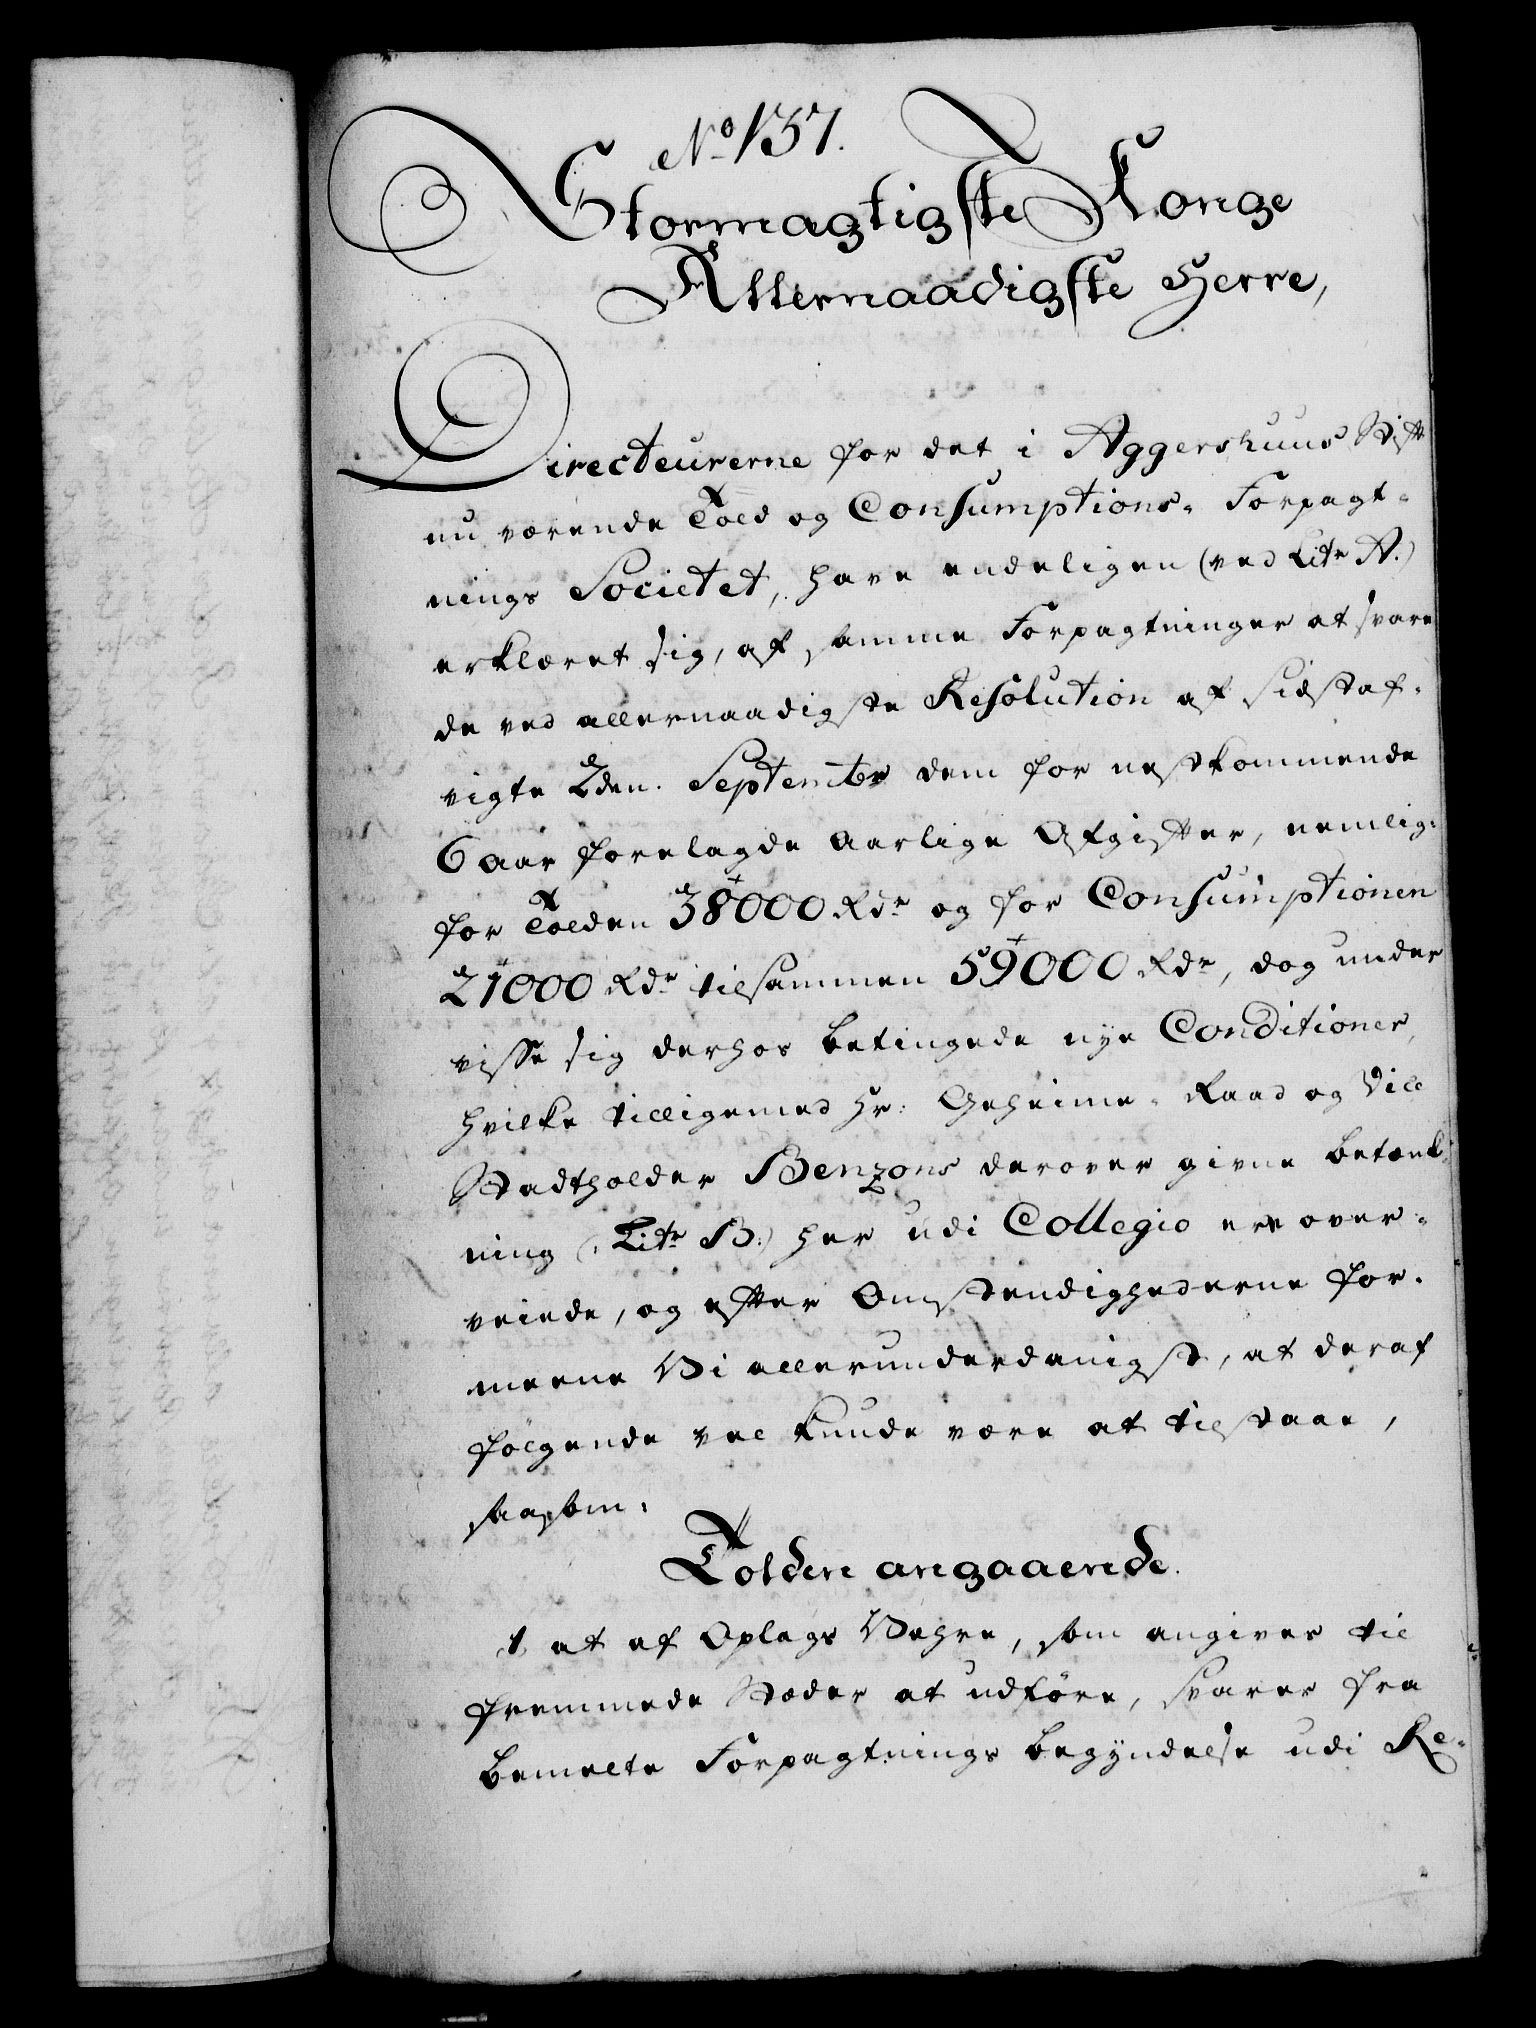 No 157.
Stormagtigste Konge
Allernaadigste Herre,
Directeurerne for det i Aggershuus Stift
nu værende Told og Consumptions- Forpagt-
nings Societet, have endeligen (ved Litr A.)
erklæret sig, af samme Forpagtninger at svare
de ved allernaadigste Resolution af sidstaf-
vigte 2den September dem for nestkommende
6 aar forelagde aarlige Afgifter, nemlig:
for Tolden 38000 Rdr og for Consumptionen
21000 Rdr tilsammen 59000 Rdr, dog under
visse sig derhos betingede nye Conditioner,
hvilke tilligemed Hr: Geheime-Raad og Vice
Stadtholder Benzons derover givne betænk-
ning (: Litr B:) her udi Collegio ere over-
veiede, og efter Omstendighederne for-
meene Vi allerunderdanigst, at deraf
følgende vel kunde være at tilstaae,
saasom:
Tolden angaaende.
1, at af Oplags Vahre, som angives til
fremmede Stæder at udføre, svares fra
bemelte Forpagtnings begyndelse udi Re-